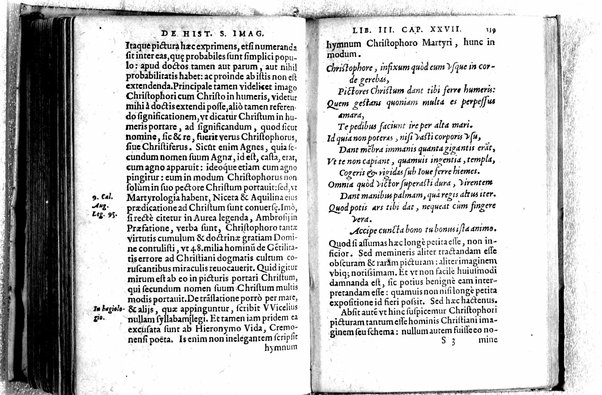 DE HIST. S. IMAG.
Itaque pictura hæc exprimens, etsi numeranda
sit inter eas, quę probabiles sunt simplici popu-
lo: apud doctos tamen aut parum, aut nihil
probabilitatis habet: ac proinde ab istis non est
extendenda. Principale tamen videlicet imago
Christophori cum Christo in humeris, videtur
mihi à doctis extendi posse, aliò tamen referen-
do significationem, vt dicatur Christum in hu-
meris portare, ad significandum, quod sicut
nomine, sic & re, fuerit verus Christophorus,
siue Christiferus. Sicut enim Agnes, quia se-
cundum nomen suum Agna, id est, casta, erat,
cum agno apparuit: ideoque etiam cum agno
pingitur: eum in modum Christophorus non
solùm in suo pectore Christum portauit: sed, vt
9. Cal.
Aug.
Leg. 95.
Martyrologia habent, Niceta & Aquilina eius
prædicatione ad Christum sunt conuersę. Imò,
si rectè citetur in Aurea legenda, Ambrosij in
Præfatione, verba sunt, Christophoro tantæ
virtutis cumulum & doctrinæ gratiam Domi-
ne contulisti, vt 48. milia hominũ de Gētilita-
tis errore ad Christiani dogmatis cultum co-
ruscantibus miraculis reuocauerit. Quid igitur
mirum est ab eo in picturis portari Christum,
qui secundum nomen suum Christum multis
modis portauit. De trãslatione porrò per mare,
In hagiolo-
gio.
& alijs, quæ appinguntur, scribit VVicelius
nullam syllabam legi. Et tamen iam pridem ea
excusata sunt ab Hieronymo Vida, Cremo-
nensi poëta. Is enim non inelegantem scripsit
hymnum
LIB. III. CAP. XXVII. 139
hymnum Christophoro Martyri, hunc in
modum.
Christophore, infixum quòd eum vsque in cor-
de gerebas,
Pictores Christum dant tibi ferre humeris:
Quem gestans quoniam multa es perpessus
amara,
Te pedibus faciunt ire per alta mari.
Id quia non poteras, nisi vasti corporis vsu,
Dant mēbra immanis quanta gigantis erāt,
Vt te non capiant, quamuis ingentia, templa,
Cogeris & rigidas sub Ioue ferre hiemes.
Omnia quòd victor superasti dura, virentem
Dant manibus palmam, qua regis altus iter.
Quod potis ars tibi dat, nequeat cùm fingere
vera.
Accipe cuncta bono tu bonus ista animo.
Quod si assumas hæc longè petita esse, non in-
ficior. Sed memineris aliter tractandam esse
obscuram & raram picturam: aliter imaginem
vbiq; notissimam. Et vt non facilè huiusmodi
damnanda est, sic potius benignè eam inter-
pretandam esse: quamuis non nisi longè petita
expositione id fieri possit. Sed hæc hactenus.
Absit autē vt hinc suspicemur Christophori
picturam tantum esse hominis Christiani ima-
ginem seu schema: nullum autem fuisse eo no-
S 3 mine